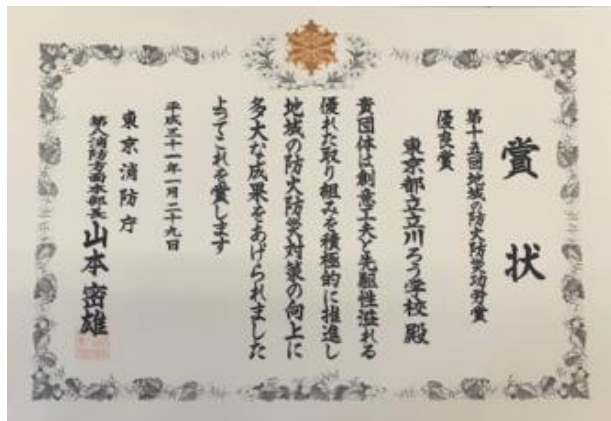 賞状
第十五回地域の防火防災功労賞
優良賞
東京都立立川ろう学校殿
貴団体は創意工夫と先駆性溢れる
優れた取り組みを積極的に推進し
地域の防火防災対策の向上に
多大な成果をあげられました
よってこれを賞します
平成三十一年一月二十九日
東京消防庁
第八消防方面本部長 山本密雄